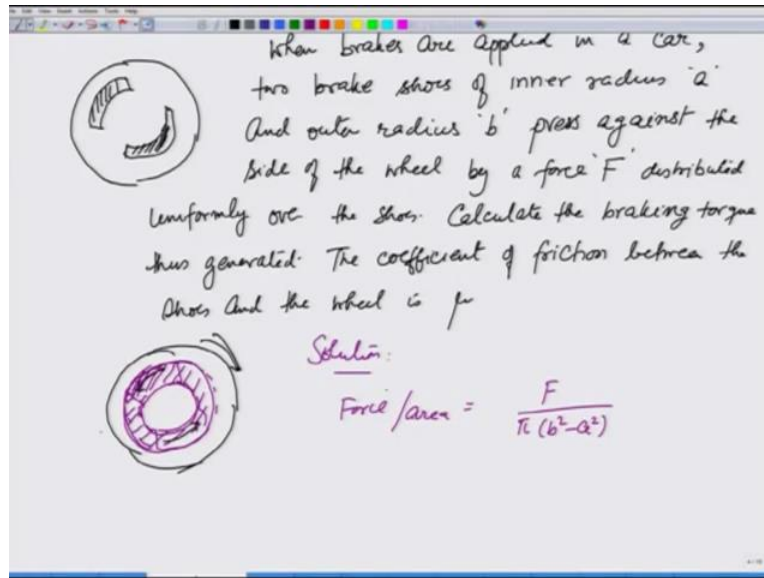 When brakes are applied in a car,
two brake shoes of inner radius 'a'
and outer radius 'b' press against the
side of the wheel by a force 'F' distributed
uniformly over the shoes. Calculate the braking torque
thus generated. The coefficient of friction between the
shoes and the wheel is μ
Solution:
Force/area = F / π (b²-a²)